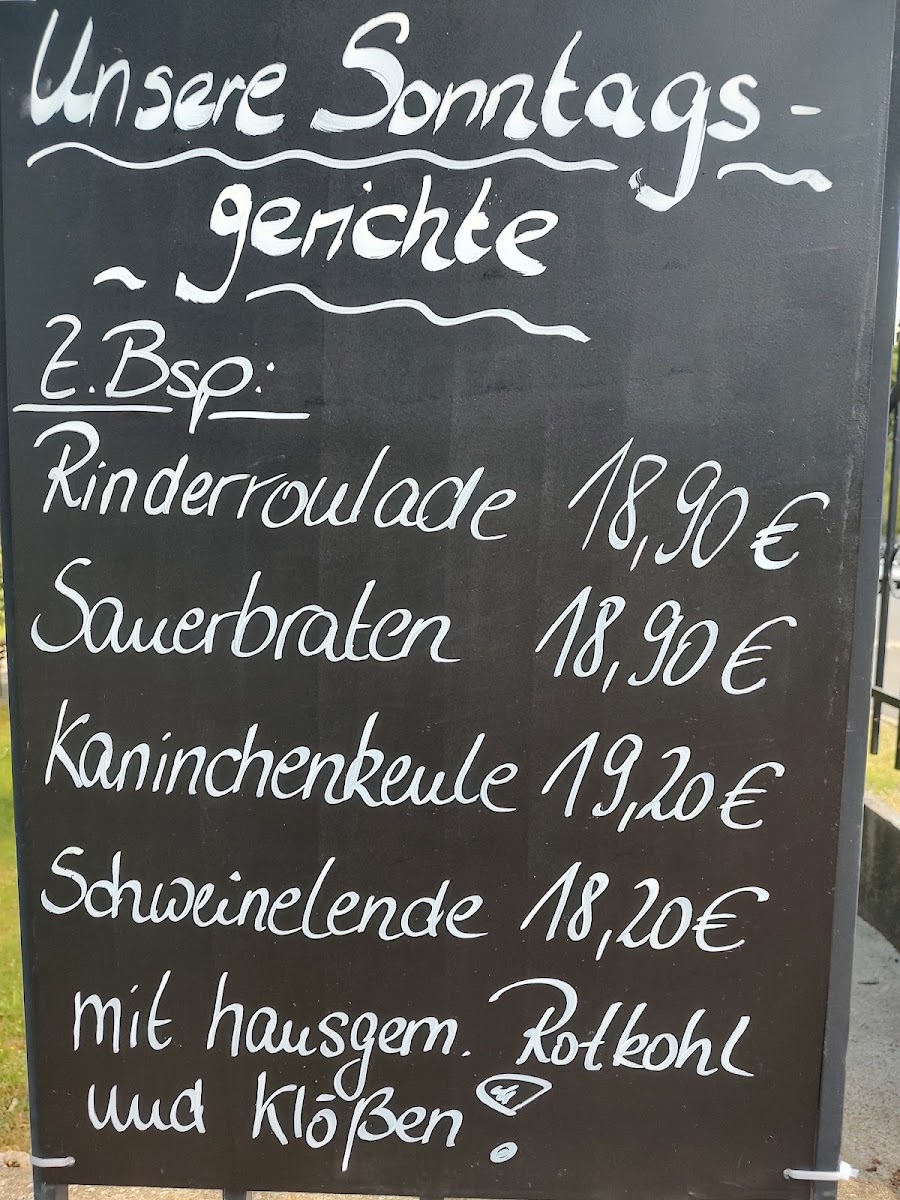 Unsere Sonntags-
gerichte
Z.Bsp.:
Rinderroulade 18,90 €
Sauerbraten 18,90 €
Kaninchenkeule 19,20 €
Schweinelende 18,20 €
mit hausgem. Rotkohl
und Klößen!